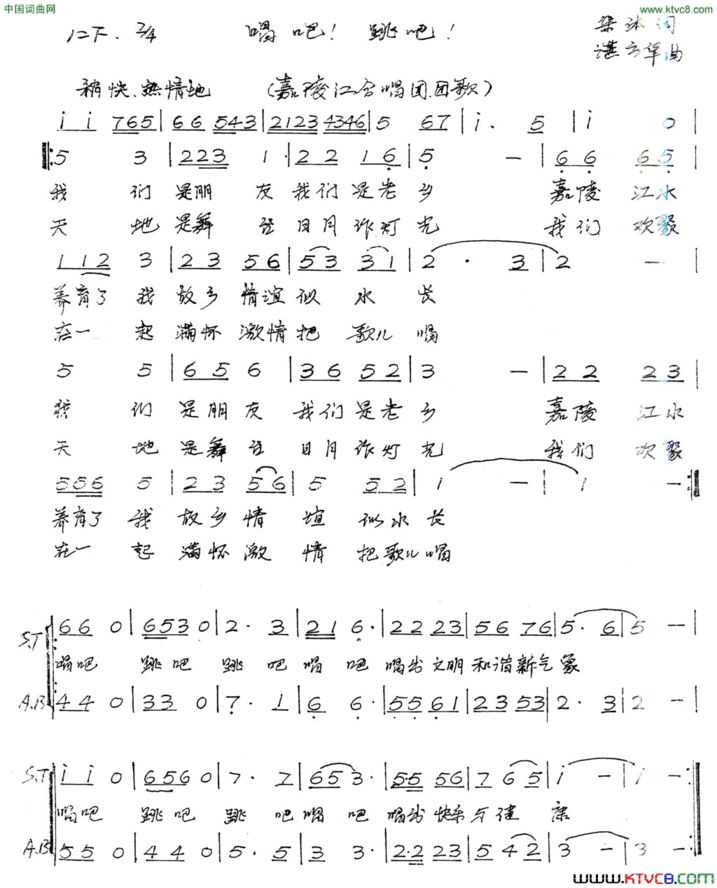 中国词曲网
www.ktvc8.com
1=F 2/4 唱吧！跳吧！
词
曲
稍快、热情地 (嘉陵江合唱团团歌)
i i 765 | 66 543 | 2123 4346 | 5 67 | i. 5 | i 0 |
5 3 | 223 1· | 22 16 | 5 — | 66 65 |
我们是朋友我们是老乡 嘉陵江水
天地是舞台日月作灯光 我们欢聚
112 3 | 23 56 | 53 31 | 2 · 3 | 2 — |
养育了我故乡情谊似水长
在一起满怀激情把歌儿唱
5 5 | 65 6 | 36 52 | 3 — | 22 23 |
我们是朋友我们是老乡 嘉陵江水
天地是舞台日月作灯光 我们欢聚
556 5 | 23 56 | 5 52 | 1 — | 1 — :|
养育了我故乡情谊似水长
在一起满怀激情把歌儿唱
S.T 66 0 | 653 0 | 2· 3 | 216· | 22 23 | 56 76 | 5· 6 | 5 — |
唱吧 跳吧 跳吧唱吧唱出文明和谐新气象
A.B 44 0 | 33 0 | 7· 1 | 6 6· | 55 61 | 23 53 | 2· 3 | 2 — |
S.T i i 0 | 656 0 | 7· 7 | 65 3· | 5·5 56 | 7 65 | i — | i — :|
唱吧 跳吧 跳吧唱吧 唱出快乐与健康
A.B 55 0 | 44 0 | 5· 5 | 3 3· | 2·2 23 | 5 42 | 3 — | 3 — :|
www.KTVC8.com